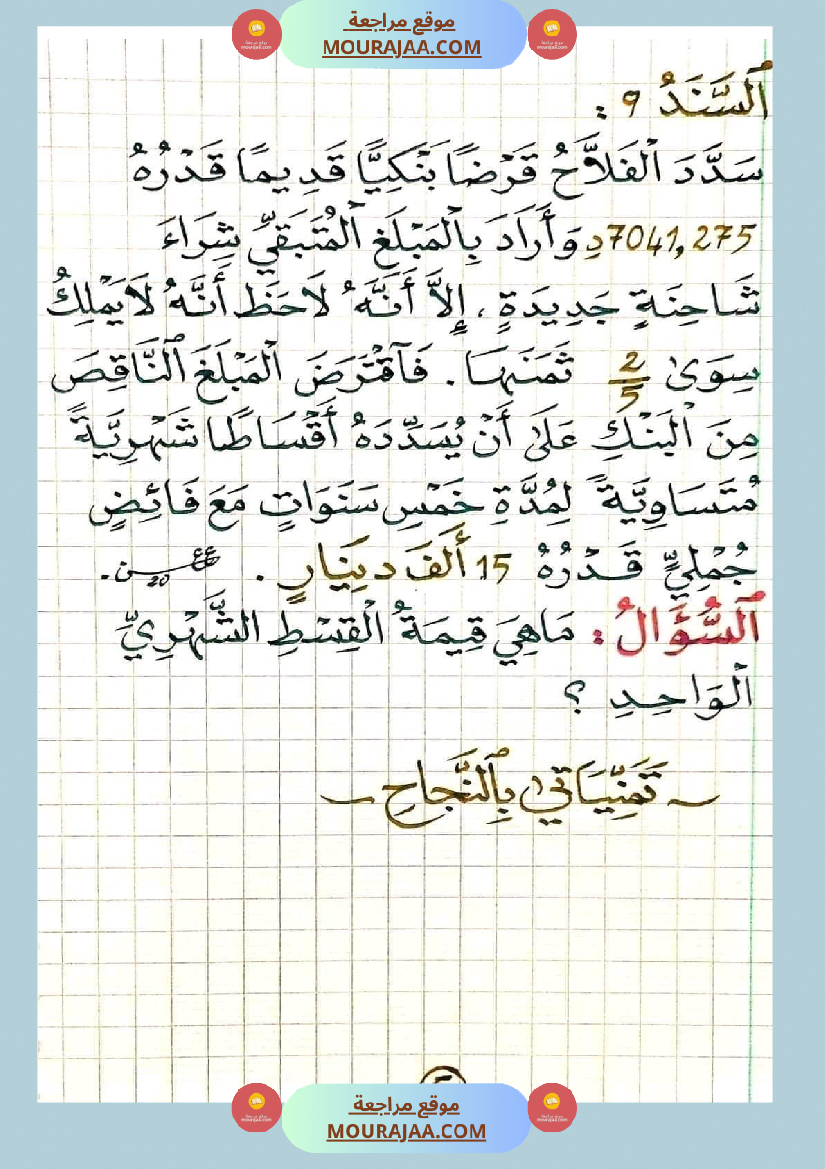 موقع مراجعة
MOURAJAA.COM
اَلسَّنَدُ 9 :
سَدَّدَ الْفَلاَّحُ قَرْضًا بَنْكِيًّا قَدِيمًا قَدْرُهُ
7041,275د وَأَرَادَ بِالْمَبْلَغِ الْمُتَبَقِّي شِرَاءَ
شَاحِنَةٍ جَدِيدَةٍ ، إِلاَّ أَنَّهُ لاَحَظَ أَنَّهُ لاَ يَمْلِكُ
سِوَى 2/5 ثَمَنَهَا . فَاقْتَرَضَ الْمَبْلَغَ النَّاقِصَ
مِنَ الْبَنْكِ عَلَى أَنْ يُسَدِّدَهُ أَقْسَاطًا شَهْرِيَّةً
مُتَسَاوِيَّةً لِمُدَّةِ خَمْسِ سَنَوَاتٍ مَعَ فَائِضٍ
جُمْلِيٍّ قَدْرُهُ 15 أَلْفَ دِينَارٍ .
اَلسُّؤَالُ : مَا هِيَ قِيمَةُ الْقِسْطِ الشَّهْرِيِّ
الْوَاحِدِ ؟
~ تَمَنِّيَاتِي بِالنَّجَاحِ ~
موقع مراجعة
MOURAJAA.COM